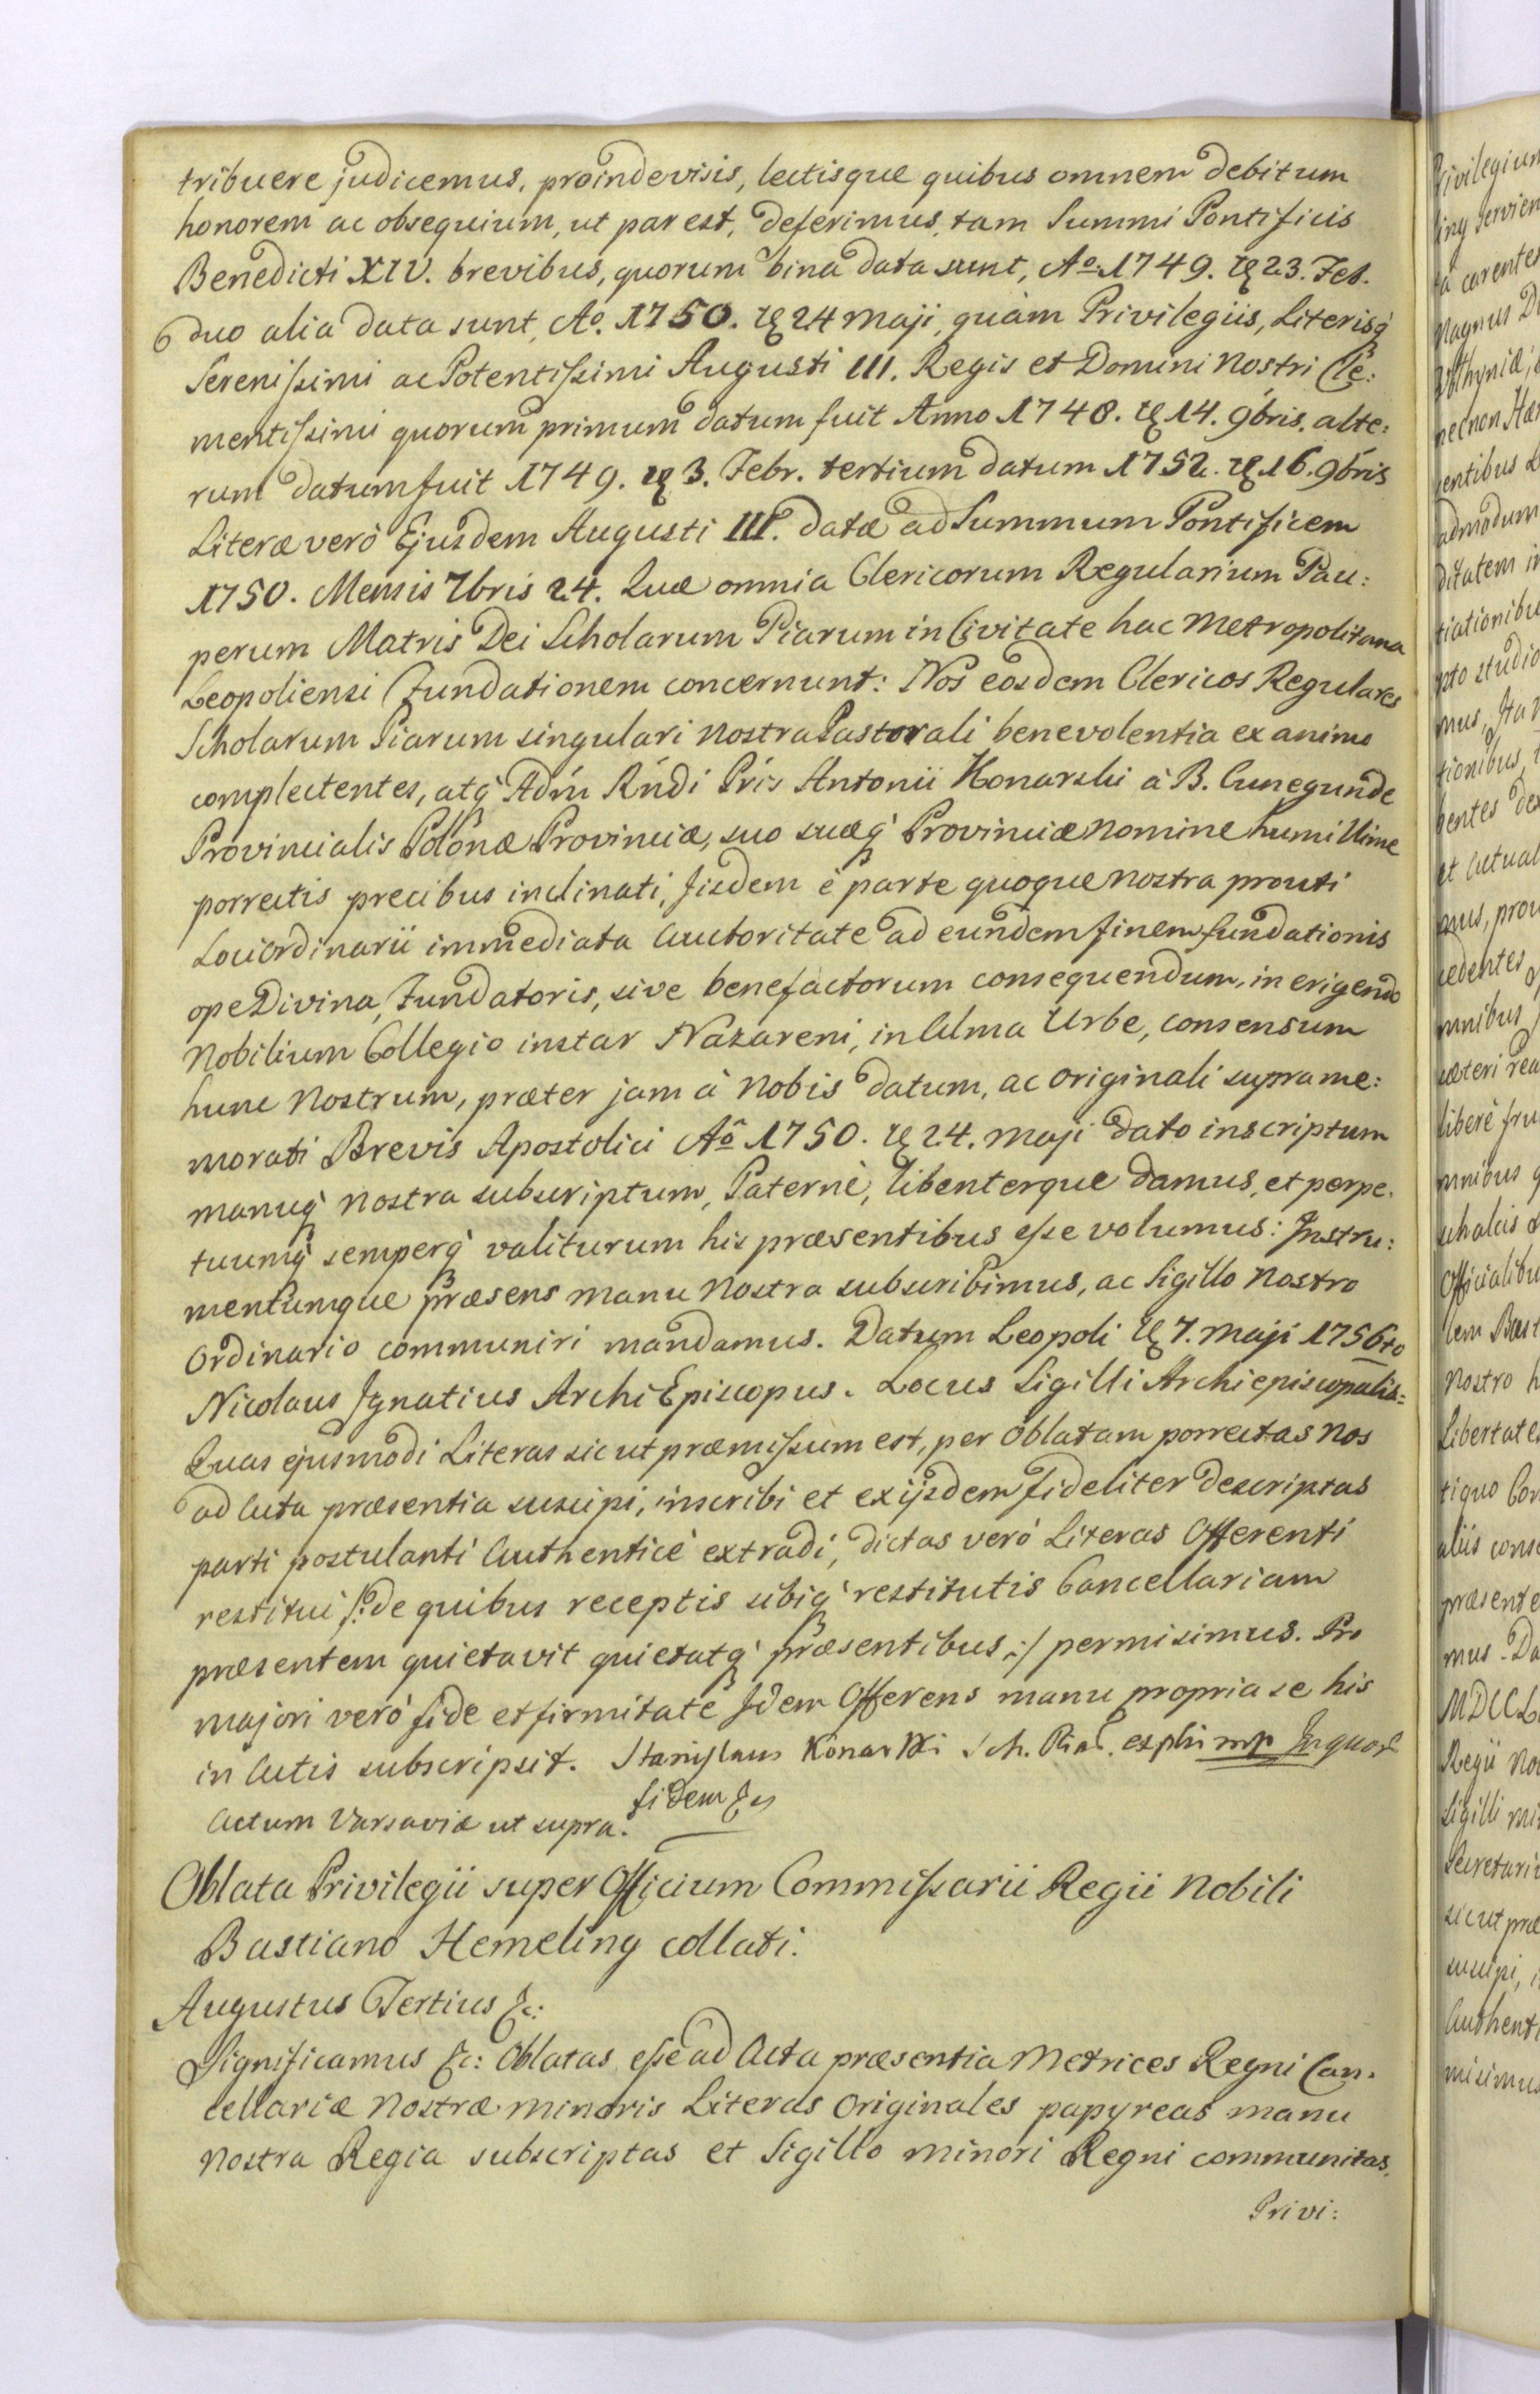 tribuere judicemus, proinde visis, lectisque quibus omnem debitum
honorem ac obsequium, ut par est, deferimus, tam Summi Pontificis
Benedicti XIV. brevibus, quorum bina data sunt, Aº 1749. 23. Feb.
duo alia data sunt, Aº. 1750. 24 Maji, quàm Privilegiis, Literisq́
Serenissimi ac Potentissimi Augusti III. Regis et Domini Nostri Cle:
mentissimi quorum primum datum fuit Anno 1748. 14. 9bris. alte:
rum datum fuit 1749. 3. Febr. tertium datum 1752. 16. 9bris
Literæ verò Ejusdem Augusti III. datæ ad Summum Pontificem
1750. Mensis 7bris 24. Quæ omnia Clericorum Regularium Pau:
perum Matris Dei Scholarum Piarum in Civitate hac Metropolitana
Leopoliensi Fundationem concernunt: Nos eosdem Clericos Regulares
Scholarum Piarum singulari Nostra Pastorali benevolentia ex animo
complectentes, atq́ Adm̃ Rńdi Pŕis Antonii Konarski à B. Cunegunde
Provincialis Polonæ Provinciæ, suo suæq́ Provinciæ nomine humillime
porrectis precibus inclinati, Jisdem è parte quoque Nostra prouti
Loci Ordinarii immediata Authoritate ad eundem finem fundationis
ope Divina, Fundatoris, sive benefactorum consequendum, in erigendo
Nobilium Collegio instar Nazareni, in Alma Urbe, consensum
hunc Nostrum, præter jam à Nobis datum, ac originali suprame:
morati Brevis Apostolici Aº 1750. 24. Maji dato inscriptum
manuq́ Nostra subscriptum, Paternè, libenterque damus, et perpe.
tuumq́ semperq́ valiturum his præsentibus esse volumus: Instru:
mentumque præsens manu Nostra subscribimus, ac Sigillo Nostro
Ordinario communiri mandamus. Datum Leopoli 7. Maji 1756to
Nicolaus Ignatius Archi Episcopus. Locus Sigilli Archiepiscopalis.
Quas ejusmodi Literas sicut præmissum est, per Oblatam porrectas Nos
ad Acta præsentia suscipi, inscribi et ex ijsdem fideliter descriptas
parti postulanti Authenticè extradi, dictas verò Literas Offerenti
restitui /: de quibus receptis sibiq́ restitutis Cancellariam
præsentem quietavit quietatq́ præsentibus :/ permisimus. Pro
majori verò fide et firmitate Idem Offerens manu propria se his
in Actis subscripsit. Stanislaus Konarski Sch. Piar. mp In quor
fidem &
Actum Varsaviæ ut supra.
Oblata Privilegii super Officium Commissarii Regii Nobili
Bastiano Hemeling collati.
Augustus Tertius &c:
Significamus &c: Oblatas esse ad Acta præsentia Metrices Regni Can.
cellariæ Nostræ Minoris Literas Originales papyreas manu
Nostra Regia subscriptas et Sigillo Minori Regni communitas.
Privi: